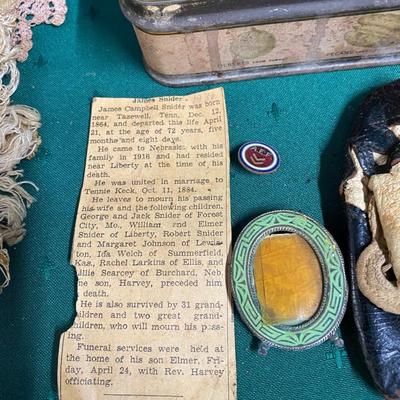 James Snider
James Campbell Snider was born
near Tazewell, Tenn, Dec. 12,
1864, and departed this life April
21, at the age of 72 years, five
months and eight days.
He came to Nebraska with his
family in 1916 and had resided
near Liberty at the time of his
death.
He was united in marriage to
Tennie Keck, Oct. 11, 1884.
He leaves to mourn his passing
his wife and the following children,
George and Jack Snider of Forest
City, Mo., William and Elmer
Snider of Liberty, Robert Snider
and Margaret Johnson of Lewis-
ton, Ida Welch of Summerfield,
Kas., Rachel Larkins of Ellis, and
llie Searcey of Burchard, Neb.
ne son, Harvey, preceded him
death.
He is also survived by 31 grand-
children and two great grand-
children, who will mourn his pass-
ing.
Funeral services were held at
the home of his son Elmer, Fri-
day, April 24, with Rev. Harvey
officiating.
A.E.F.